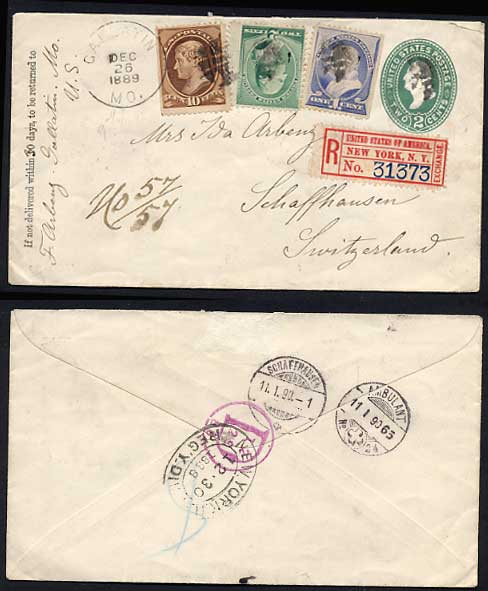 If not delivered within 30 days, to be returned to
F. Arbenz, Gallatin, Mo.
U. S.
GALLATIN
DEC
26
1889
MO.
10
ONE 1 CENT
UNITED STATES POSTAGE
TWO 2 CENTS
Mrs Ida Arbenz
Schaffhausen
Switzerland.
No 57
57
R
UNITED STATES OF AMERICA.
NEW YORK, N. Y.
No. 31373
EXCHANGE
SCHAFFHAUSEN
11. I. 90.-1
AMBULANT
11 I 90
No
NEW YORK
12-30
REG'Y. DIV